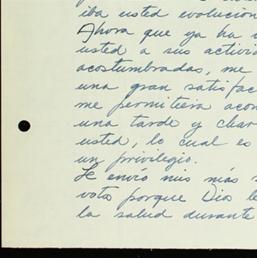 iba usted evolucion
Ahora que ya ha
usted a sus activi
acostumbradas, me
una gran satisfac
me permitiera aco
una tarde y char
usted, lo cual es
un privilegio.
Le envío mis más s
votos porque Dios le
la salud durante